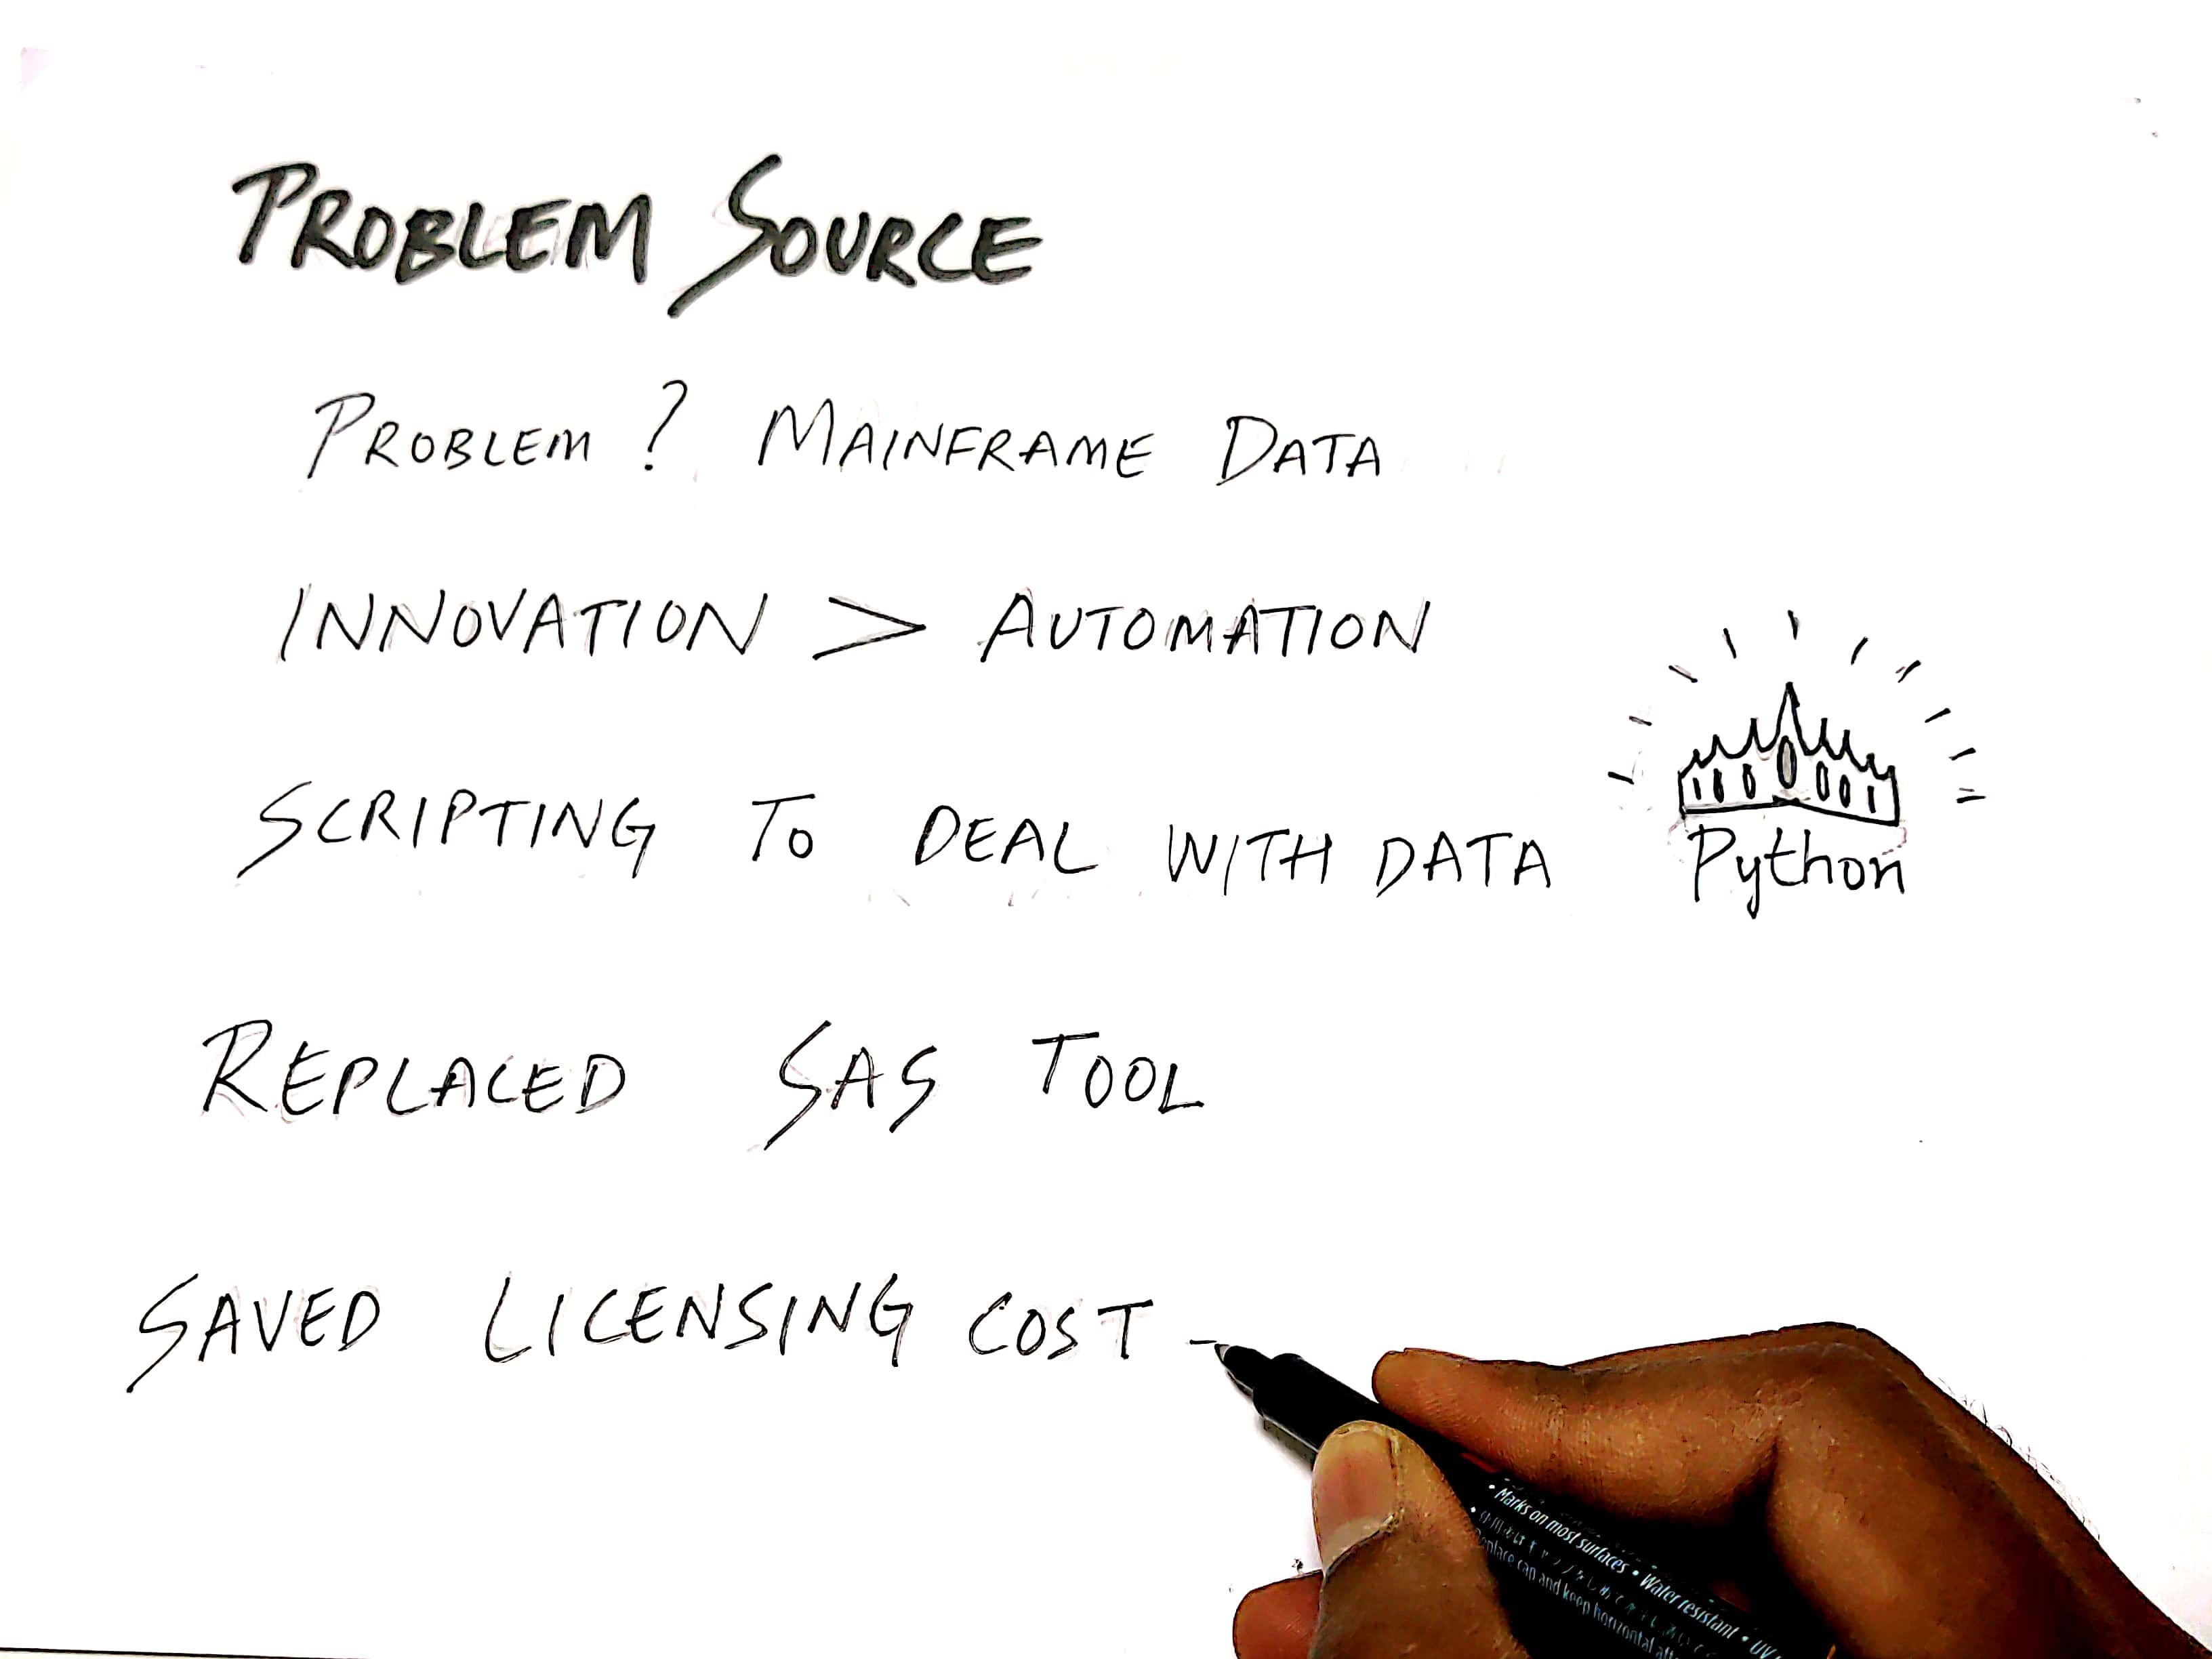 PROBLEM SOURCE
PROBLEM? MAINFRAME DATA
INNOVATION > AUTOMATION
SCRIPTING TO DEAL WITH DATA
Python
REPLACED SAS TOOL
SAVED LICENSING COST -
• Marks on most surfaces • Water resistant • UV
cap and keep horizontal